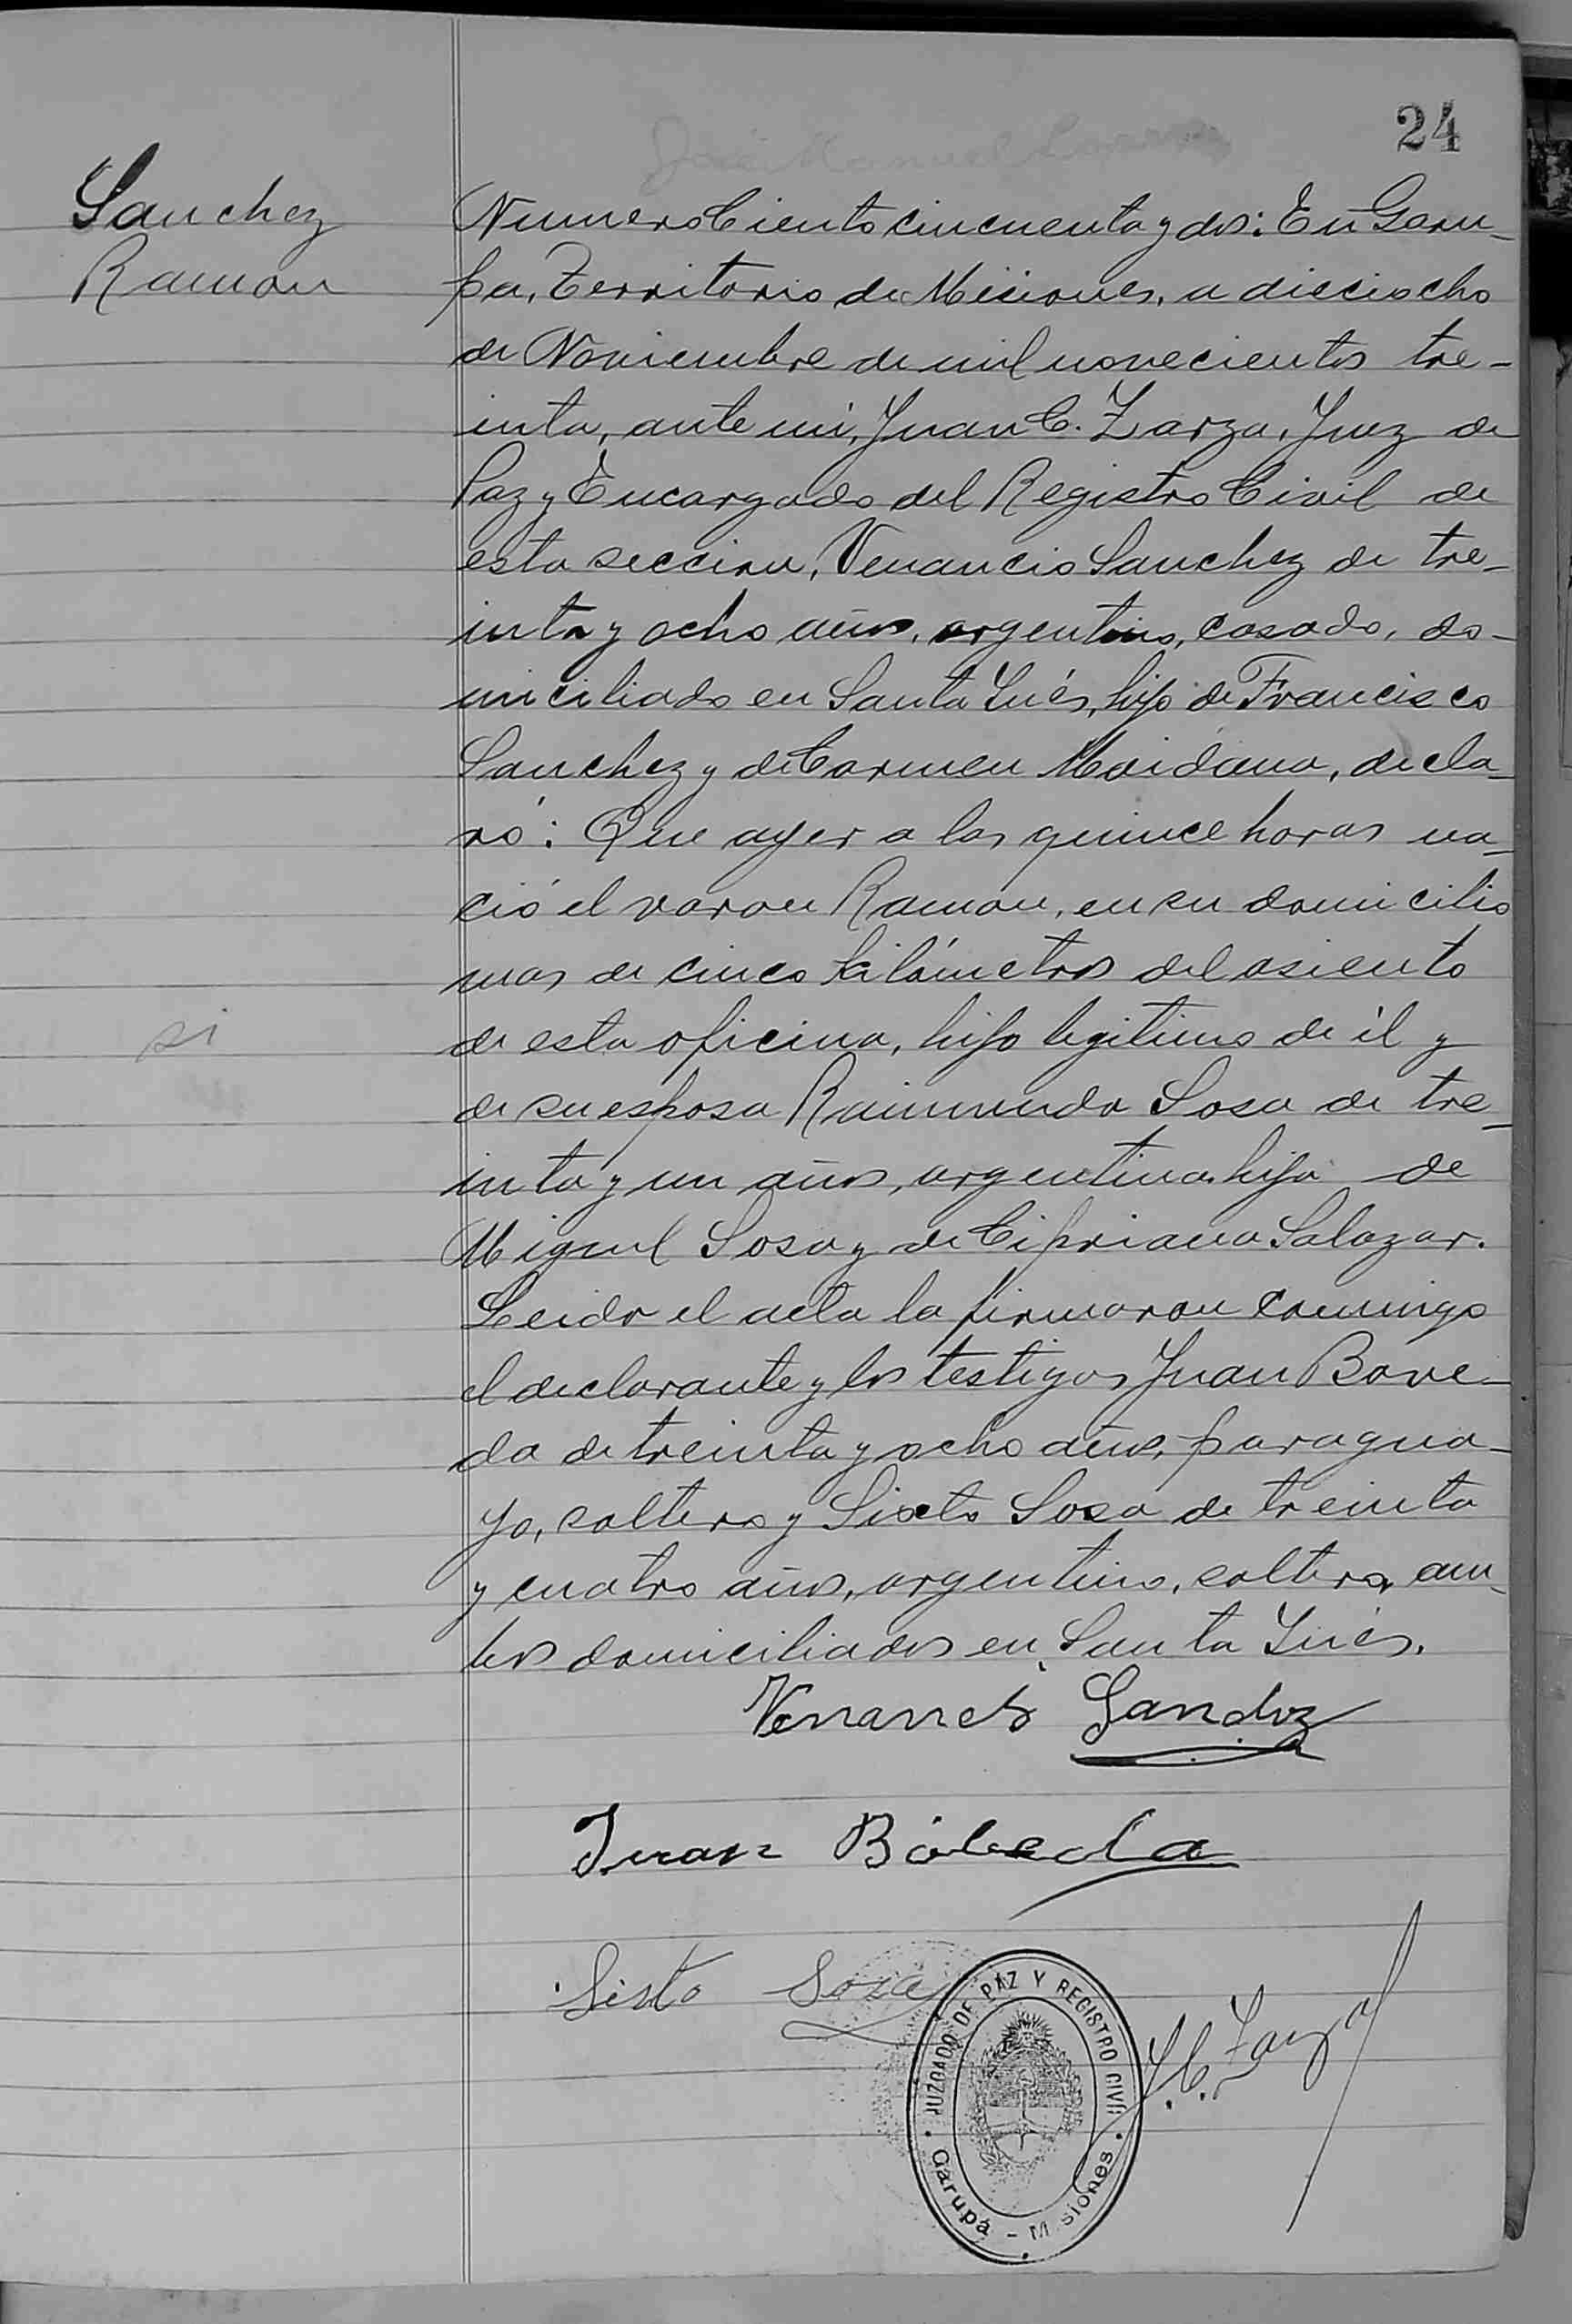 24
Sanchez
Ramon
Numero Ciento cincuenta y dos: En Garu-
pa, Territorio de Misiones, a dieciocho
de Noviembre de mil novecientos tre-
inta, ante mi, Juan C. Zarza, Juez de
Paz y Encargado del Registro Civil de
esta seccion, Venancio Sanchez de tre-
inta y ocho años, argentino, casado, do-
miciliado en Santa Inés, hijo de Francisco
Sanchez y de Carmen Maidana, decla-
ró: Que ayer a las quince horas na-
ció el varon Ramon, en su domicilio
mas de cinco kilómetros del asiento
de esta oficina, hijo legitimo de él y
de su esposa Raimunda Sosa de tre-
inta y un años, argentina, hija de
Miguel Sosa y de Cipriana Salazar.
Leida el acta la firmaron conmigo
el declarante y los testigos Juan Bove-
da de treinta y ocho años, paragua-
yo, soltero y Sixto Sosa de treinta
y cuatro años, argentino, soltero, am-
bos domiciliados en Santa Inés.
si
Venancio Sanchez
Juan Bóbeda
Sisto Sosa
J. C. Zarza
JUZGADO DE PAZ Y REGISTRO CIVIL
Garupá - Misiones